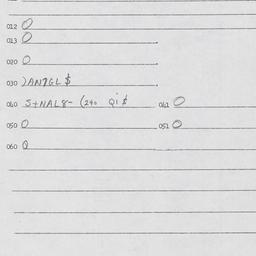 012 0
013 0
020 0
030 )AN7GL $
040 S+NAL8- (240 Qi $ 041 0
050 0 051 0
060 0